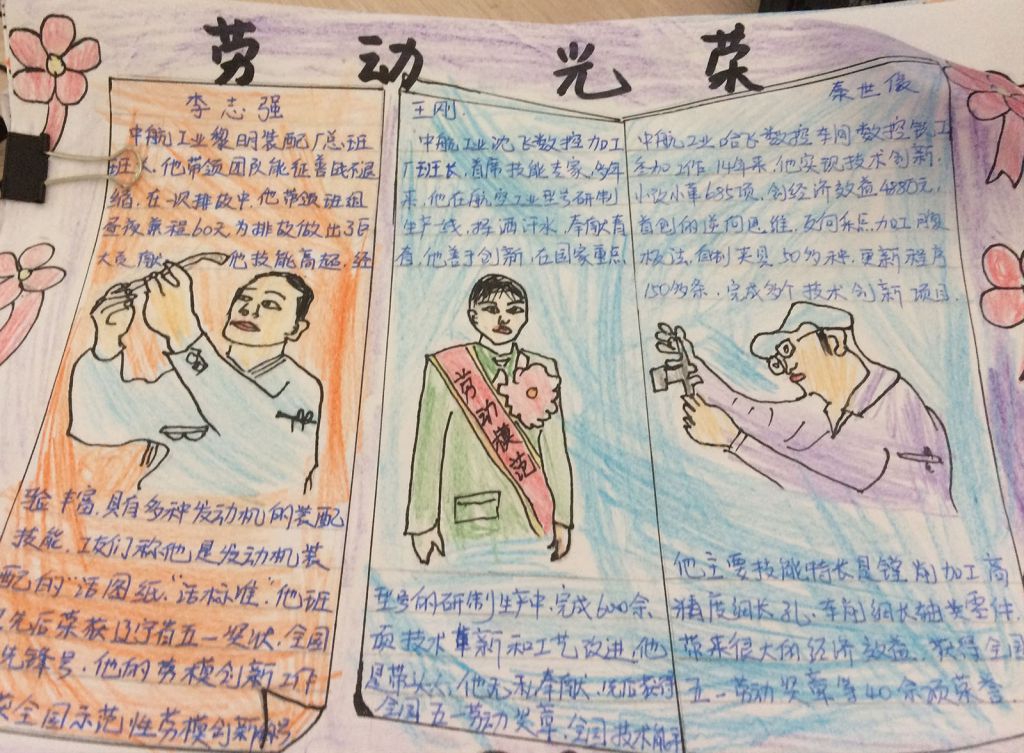 劳动光荣
李志强
中航工业黎明装配厂总班
班长。他带领团队能征善战不退
缩。在一次排故中，他带领班组
昼夜兼程60天，为排故做出了巨
大贡献。他技能高超，经
验丰富，具有多种发动机的装配
技能，工友们称他是发动机装
配的“活图纸”“活标准”。他班
先后荣获辽宁省五一奖状，全国
先锋号。他的劳模创新工作
全国示范性劳模创新
王刚
中航工业沈飞数控加工
厂班长，首席技能专家，多年
来，他在航空工业型号研制
生产线，挥洒汗水，奉献青
春，他善于创新，在国家重点
劳动模范
型号的研制生产中，完成600余
项技术革新和工艺改进，他
是带头人，他无私奉献，先后获得
全国五一劳动奖章，全国技术能手
秦世俊
中航工业哈飞数控车间数控铣工
参加工作14年来，他实现技术创新，
小改小革685项，创经济效益4880元，
首创的逆向思维，反向，加工
板法，自制夹具50多种，更新程序
150多条，完成多个技术创新项目。
他主要技能特长是镗削加工高
精度细长孔、车削细长轴类零件，
带来很大的经济效益，获得全国
五一劳动奖章等40余项荣誉。